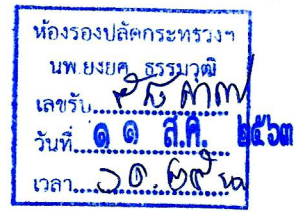 ห้องรองปลัดกระทรวงฯ
นพ.ยงยศ ธรรมวุฒิ
เลขรับ
วันที่ ๑ ๑ ส.ค. ๒๕๖๓
เวลา